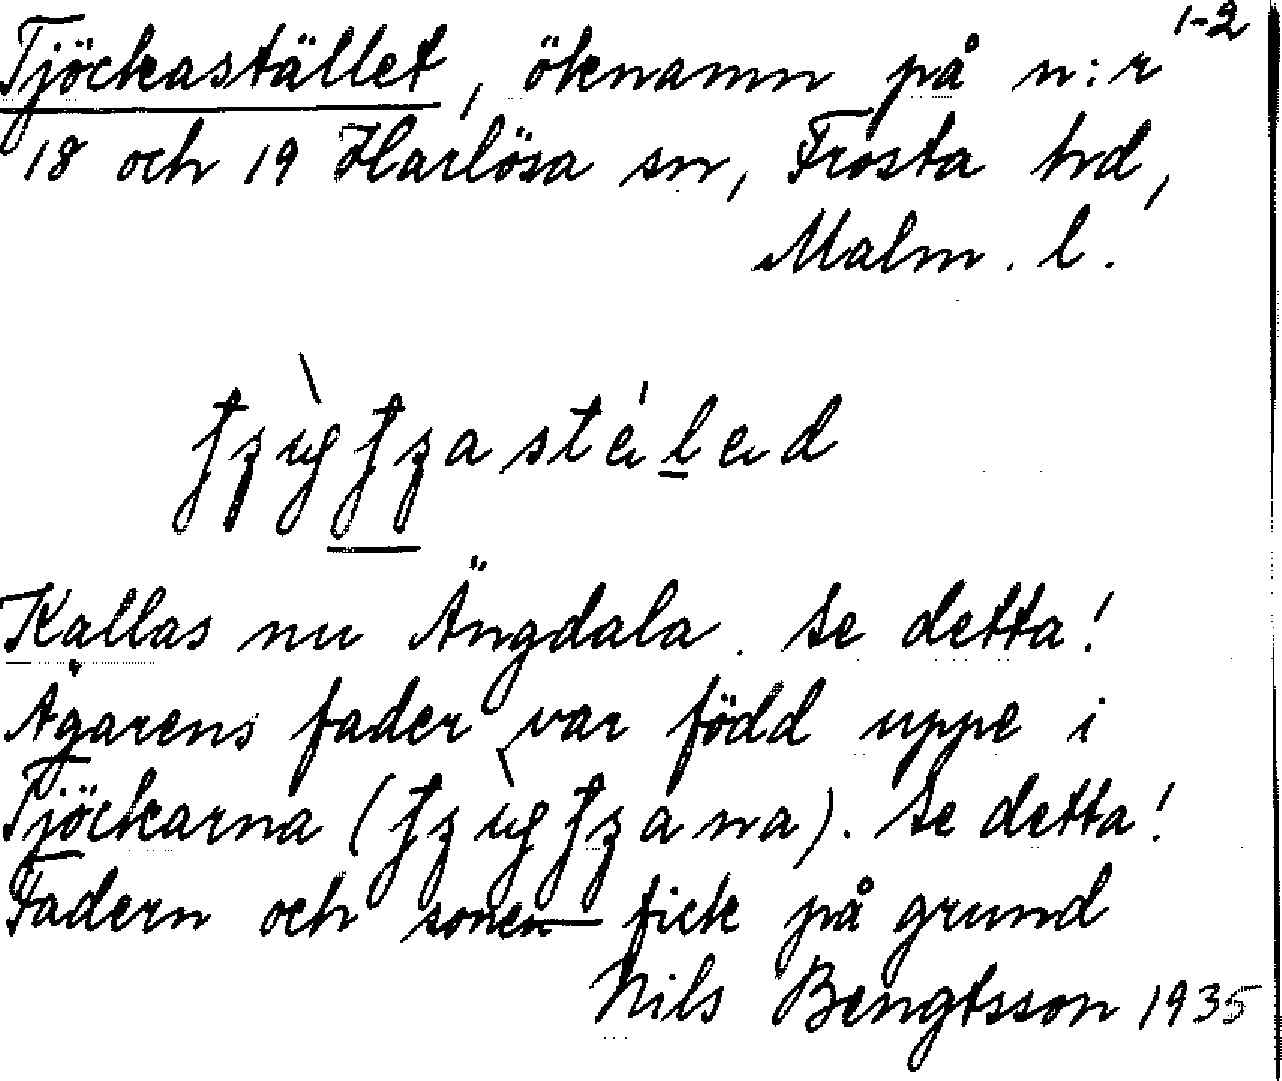 1-2
Tjöckastället, öknamn på n:r
18 och 19 Harlösa sn, Frosta hrd,
Malm. l.
Kallas nu Ängdala. Se detta!
Ägarens fader var född uppe i
Tjöckarna (). Se detta!
Fadern och sonen fick på grund
Nils Bengtsson 1935